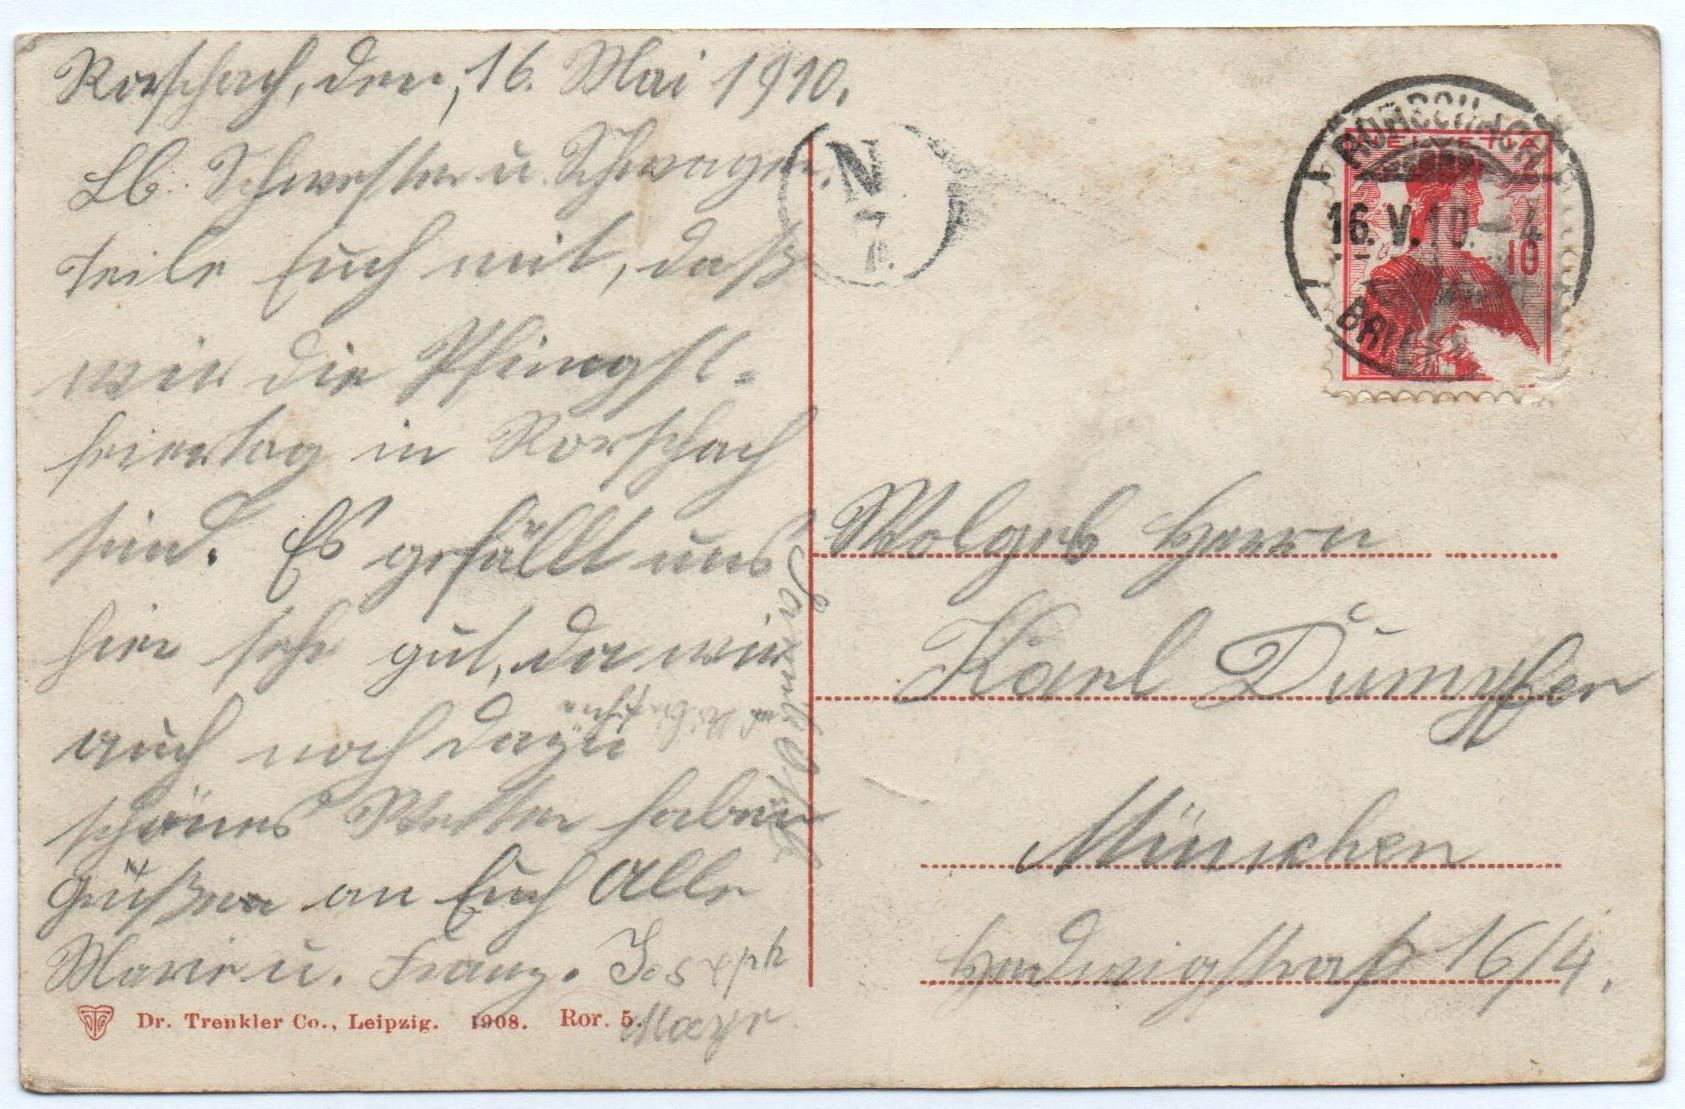 Rorschach, den, 16. Mai 1910.
Lb. Schwester u. Schwager.
Teile Euch mit, daß
wir die Pfingst-
feiertag in Rorschach
sind. Es gefällt uns
hier sehr gut, da wir
auch noch dazu
schönes Wetter haben
Grüßen an Euch Alle
Marie u. Franz. Joseph
Mayr
N
7.
RORSCHACH
16. V. 10. - 4
HELVETIA
10
Wolgeb Herrn
Karl Dumpfer
München
Hedwigstraß 16/4.
Dr. Trenkler Co., Leipzig. 1908. Ror. 5.